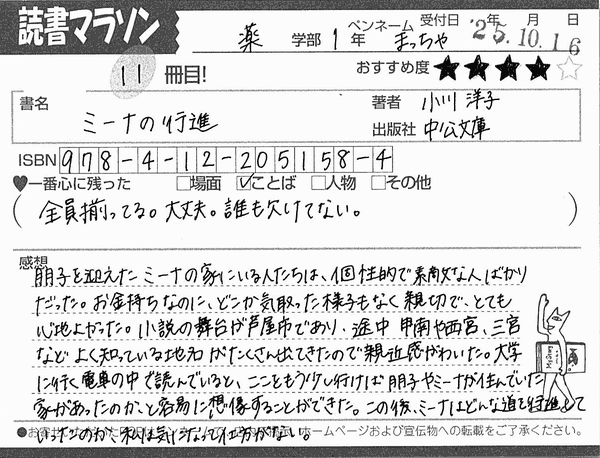 読書マラソン
薬 学部 1 年 ペンネーム まっちゃ 受付日 '25.10.16 年 月 日
11 冊目! おすすめ度 ★★★★☆
書名 ミーナの行進
著者 小川 洋子
出版社 中公文庫
ISBN 978-4-12-205158-4
♥一番心に残った □場面 ☑ことば □人物 □その他
(全員揃ってる。大丈夫。誰も欠けてない。)
感想
朋子を迎えたミーナの家にいる人たちは、個性的で素敵な人ばかり
だった。お金持ちなのに、どこか気取った様子もなく親切で、とても
心地よかった。小説の舞台が芦屋市であり、途中 甲南や西宮、三宮
など よく知っている地名がたくさん出てきたので親近感がわいた。大学
に行く電車の中で読んでいると、ここをもう少し行けば朋子やミーナが住んでいた
家があったのか、と容易に想像することができた。この後、ミーナはどんな道を行進して
いったのか、私は気になって仕方がない。
ホームページおよび宣伝物への転載をご了承ください。